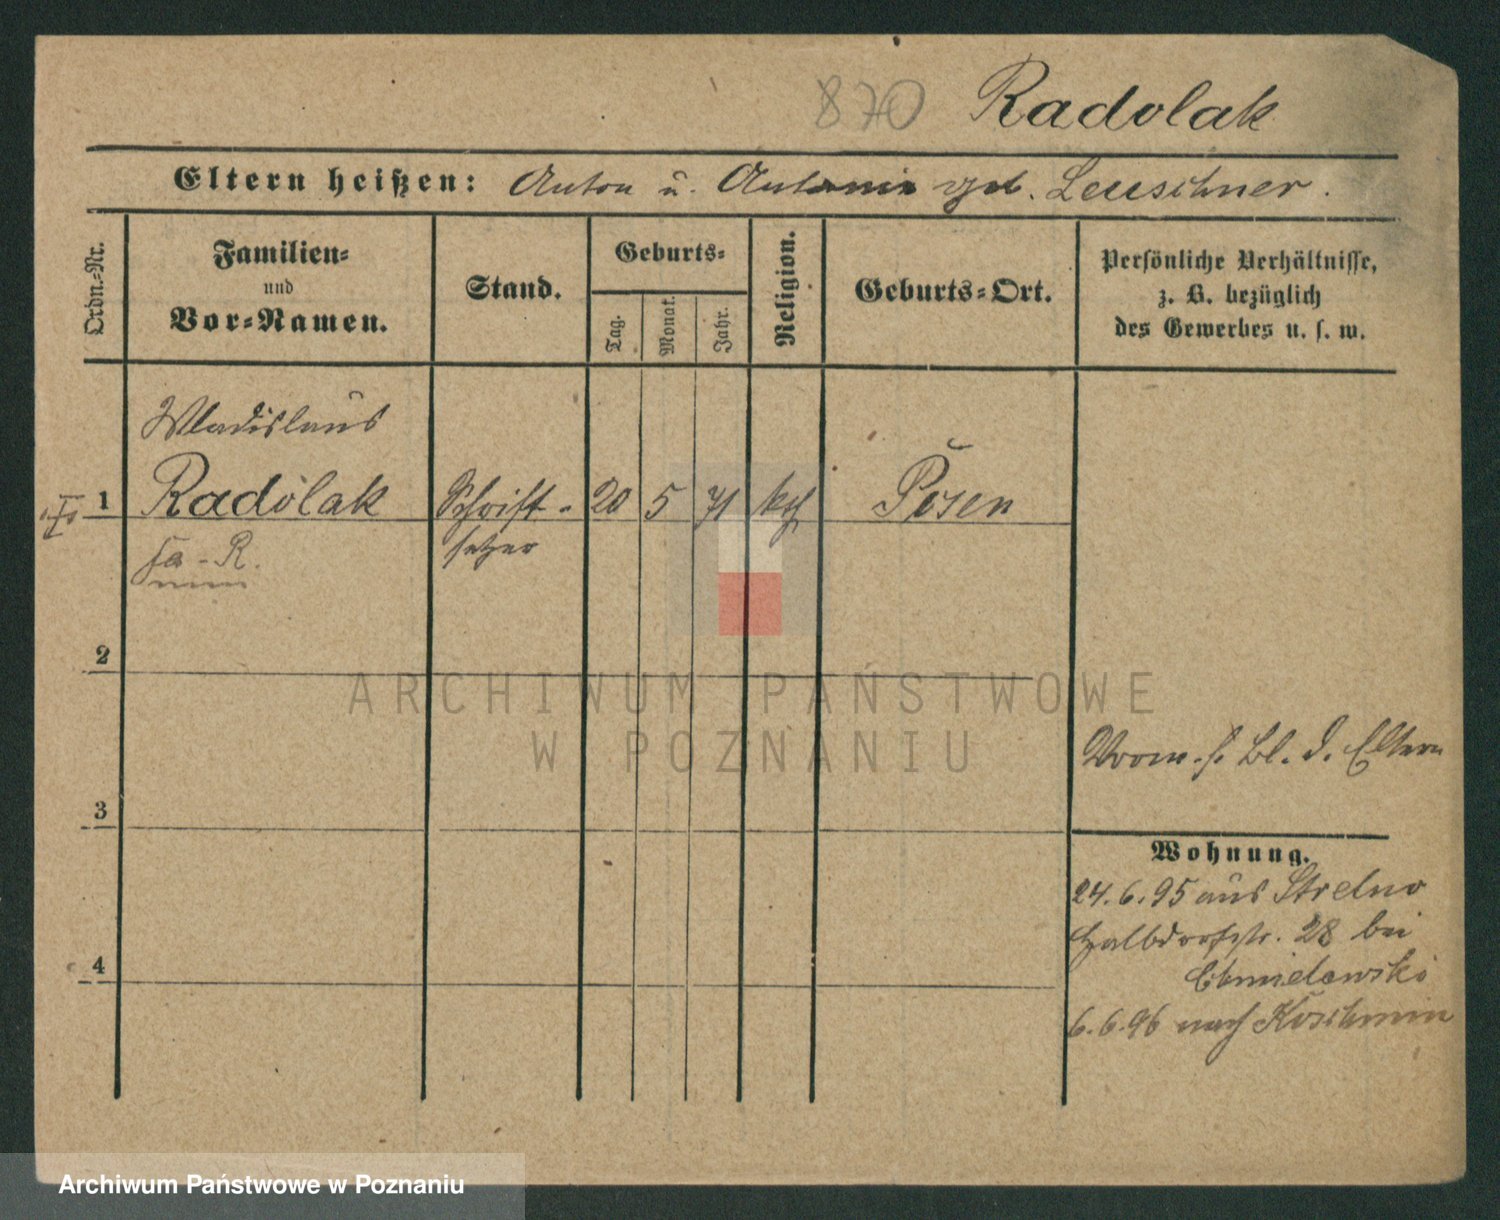 870 Radolak
Eltern heißen: Anton u. Antonie geb. Leuschner.
Ordn.-Nr.
Familien-
und
Vor-Namen.
Stand.
Geburts-
Tag.
Monat.
Jahr.
Religion.
Geburts-Ort.
Persönliche Verhältnisse,
z. B. bezüglich
des Gewerbes u. s. w.
Wladislaus
1 Radolak Schrift- 20 5 71 kth Posen
setzer
fa-R.
2
ARCHIWUM PAŃSTWOWE
W POZNANIU
Vorm. s. Bl. d. Eltern
3
Wohnung.
24.6.95 aus Strelno
Halbdorfstr. 28 bei
Chmielewski
4
6.6.96 nach Koschmin
Archiwum Państwowe w Poznaniu